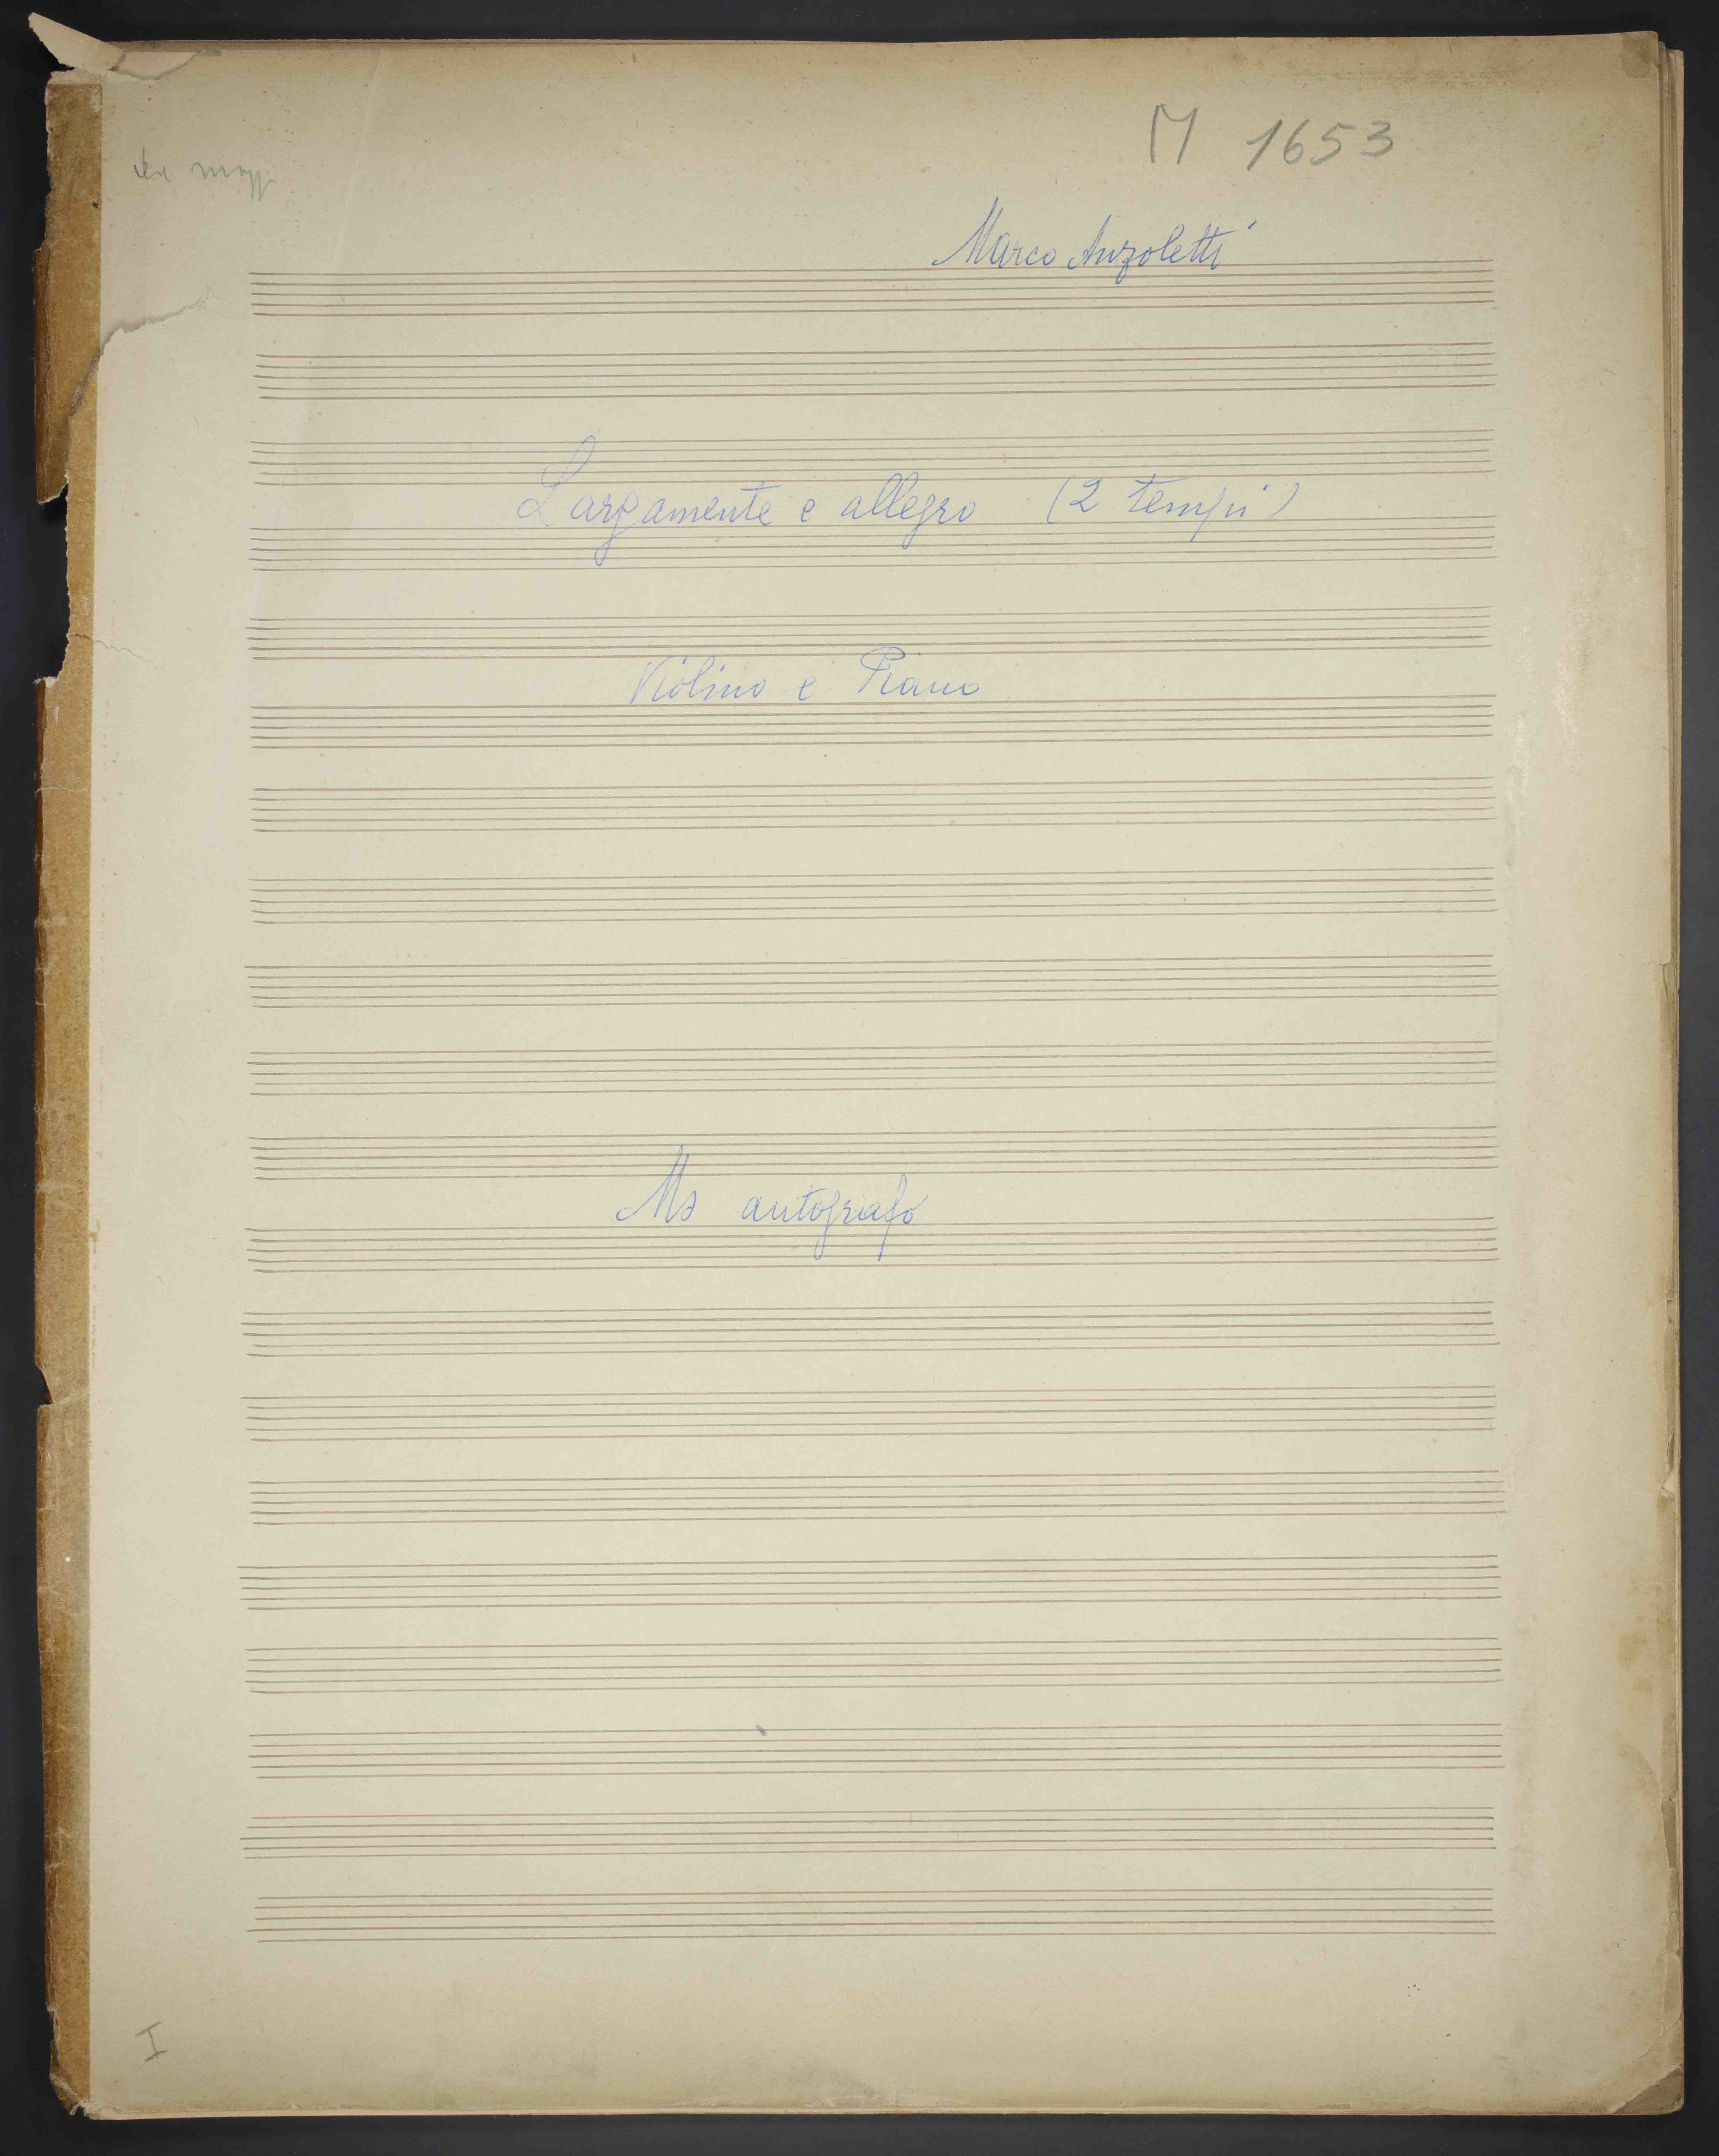 M 1653
Marco Anzoletti
Largamente e allegro (2 tempi)
Violino e Piano
Ms autografo
I